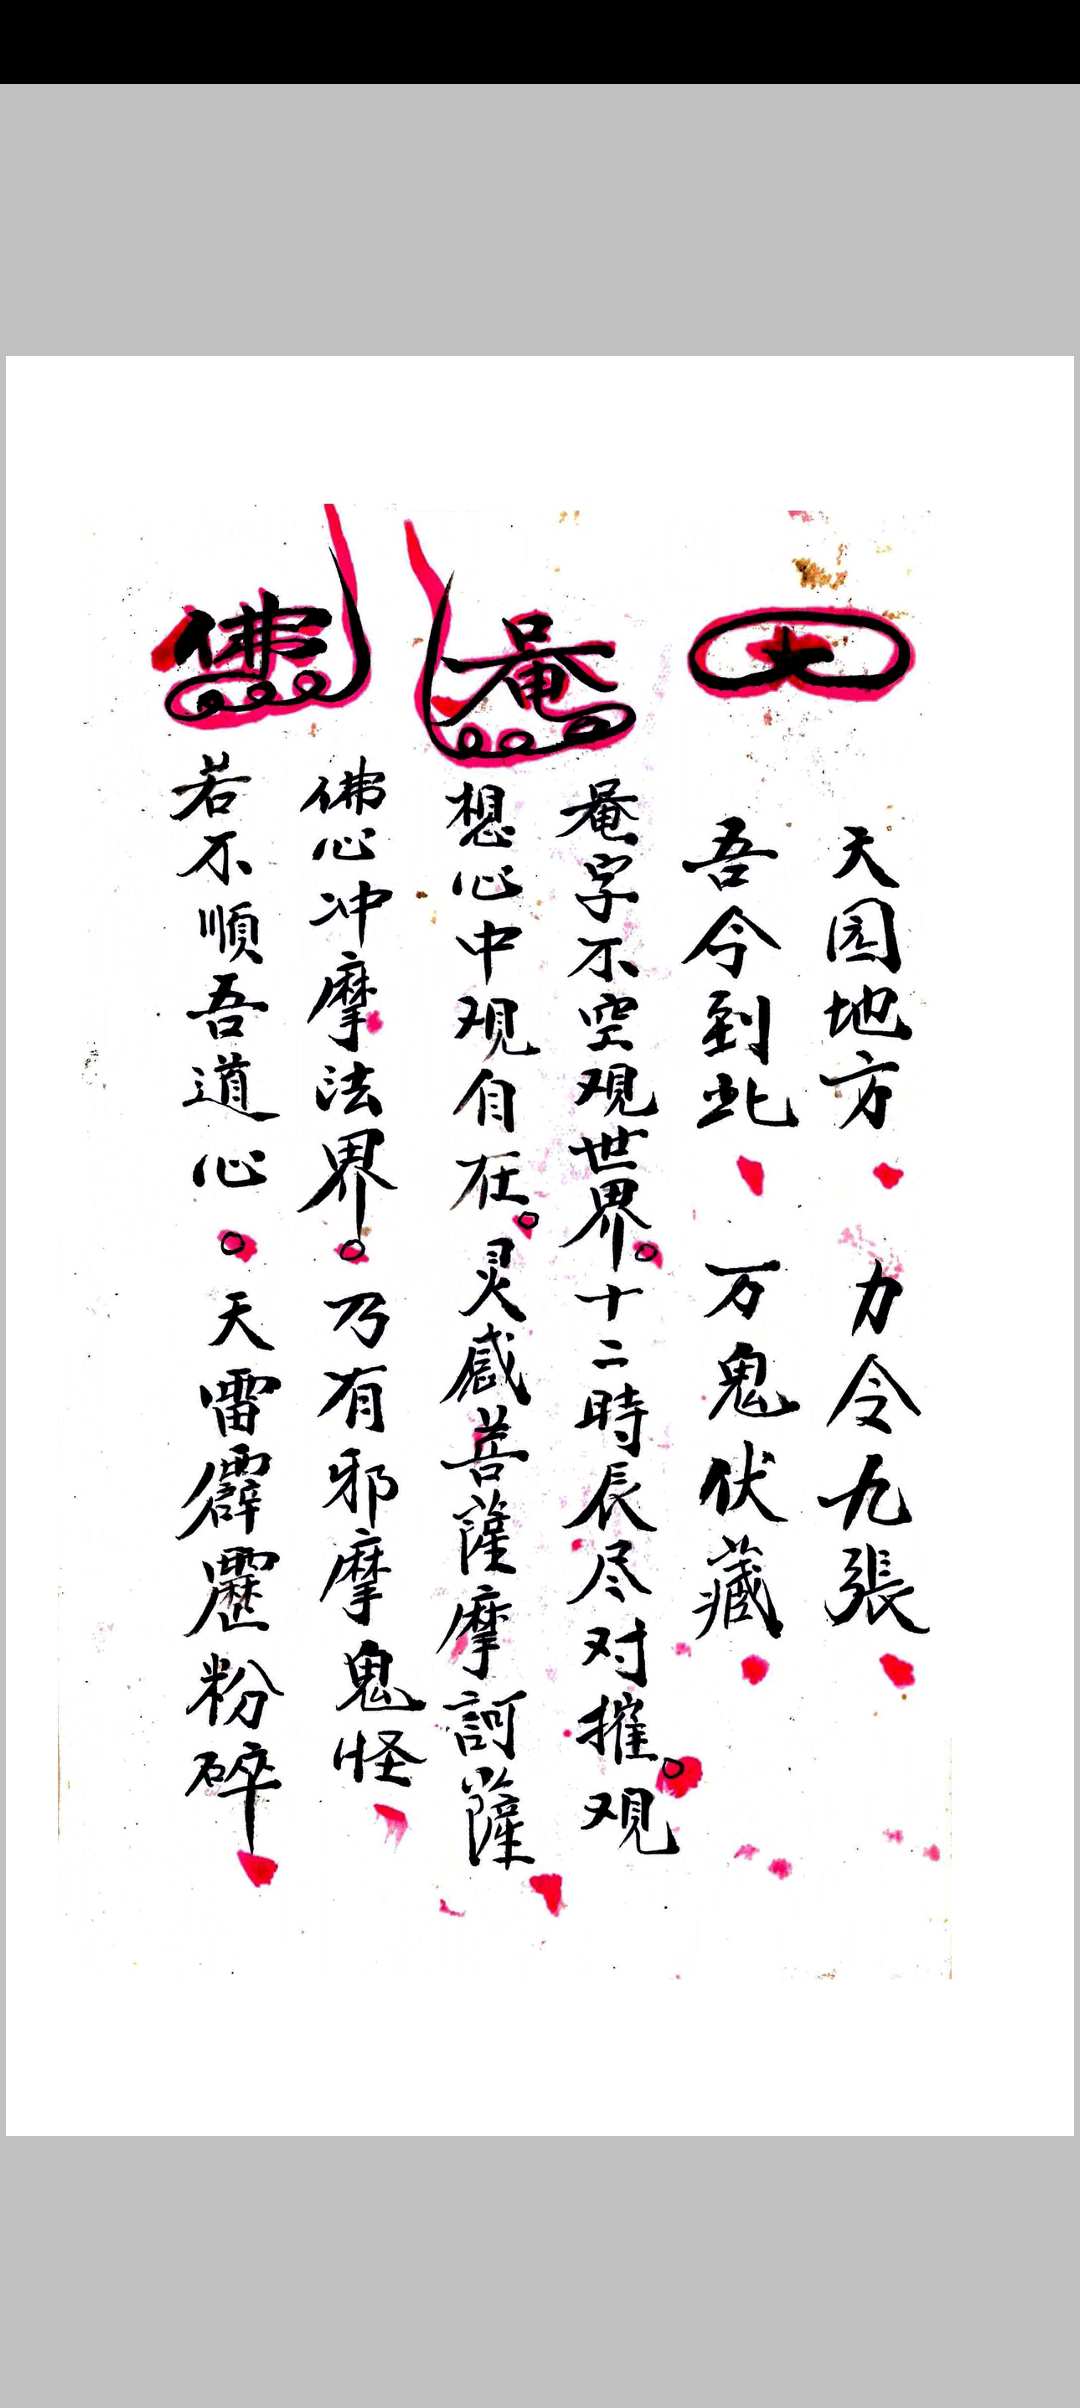 大
天园地方 力令九張
吾今到此 万鬼伏藏
菴
菴字不空观世界。十二時辰尽对摧。观
想心中观自在。灵感菩薩摩訶薩
佛
佛心冲摩法界。乃有邪摩鬼怪
若不順吾道心。天雷霹靂粉碎